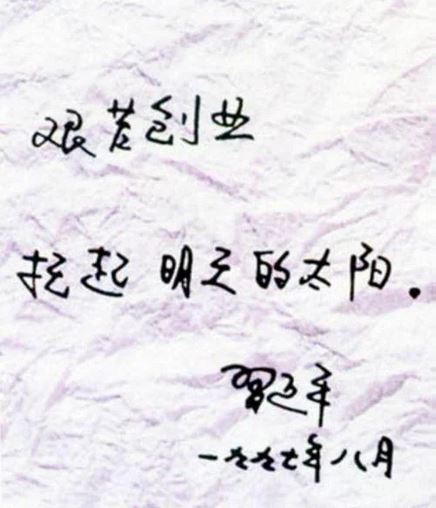 艰苦创业
托起明天的太阳。
习近平
一九九七年八月